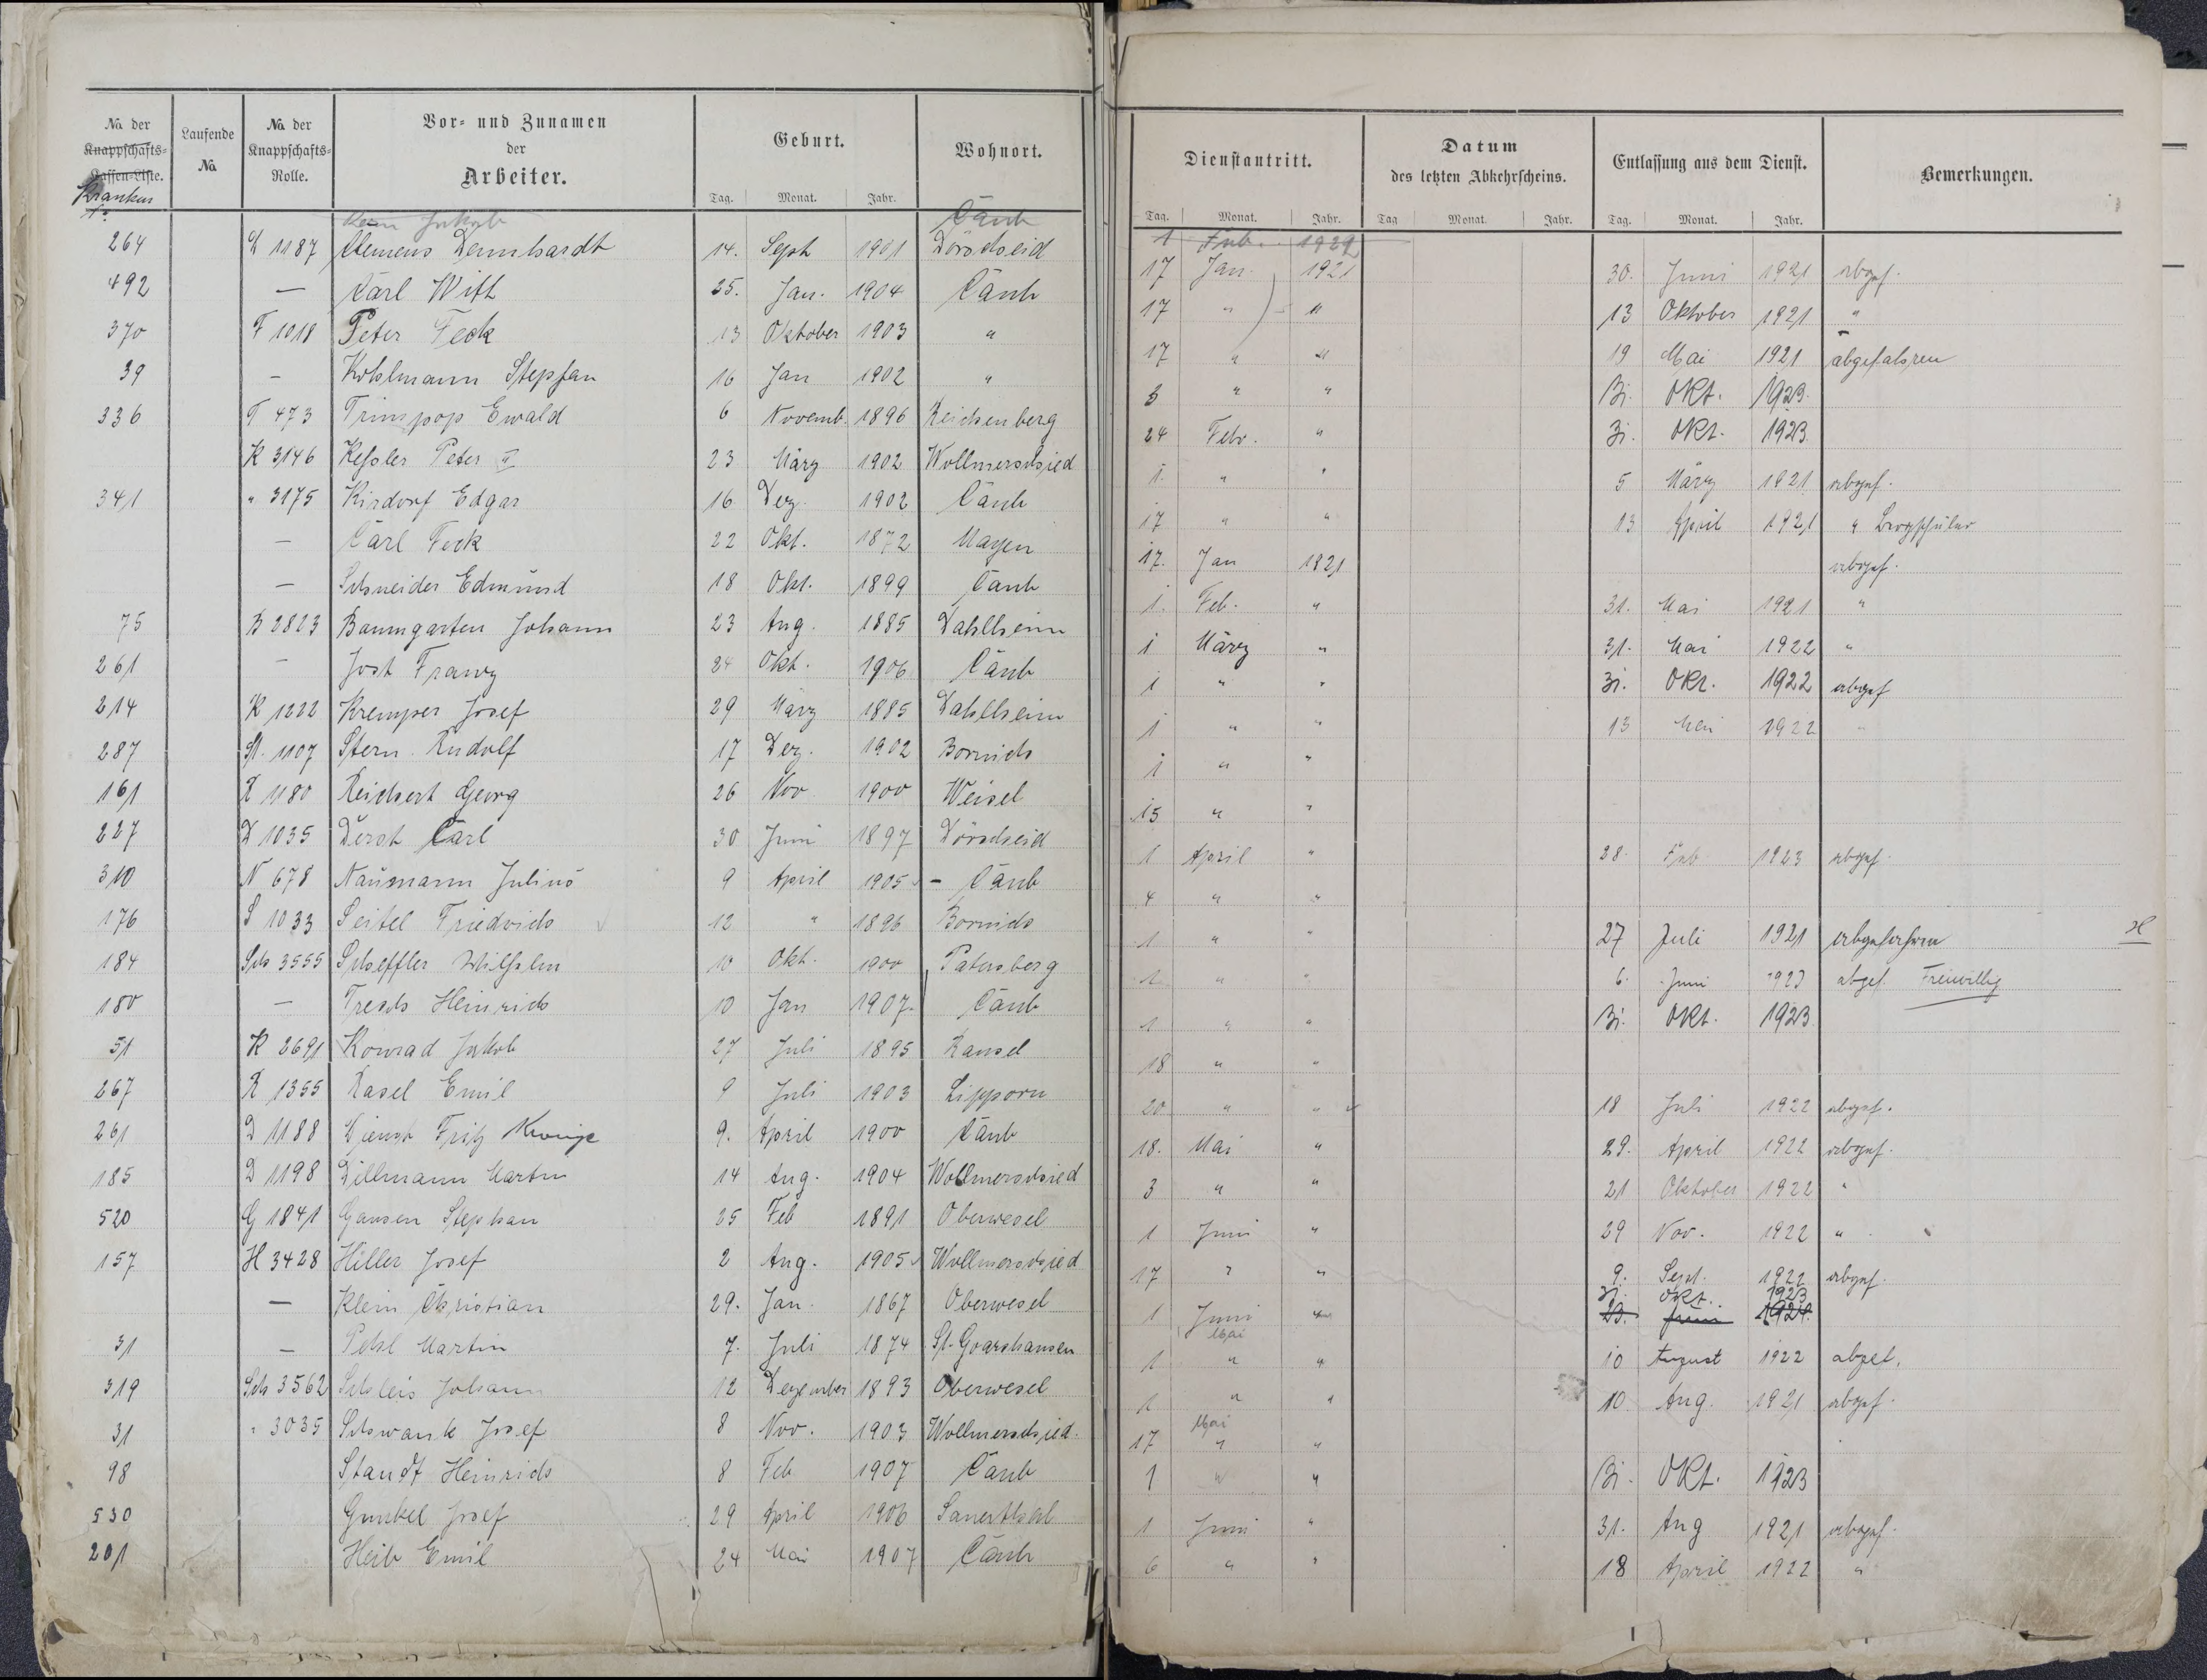 No. der Knappschafts-Kassen-Liste. Kranken
Laufende No.
No. der Knappschafts-Rolle.
Vor- und Zunamen der Arbeiter.
Geburt.
Wohnort.
Dienstantritt.
Datum des letzten Abkehrscheins.
Entlassung aus dem Dienst.
Bemerkungen.
Tag. Monat. Jahr. Tag. Monat. Jahr. Tag Monat. Jahr. Tag. Monat. Jahr.
Jakob Caub 1 Feb. 1929
264 D 1187 Clemens Dennhardt 14. Sept 1901 Dörscheid 17 Jan. 1921 30. Juni 1921 abgef.
492 — Carl Will 25. Jan. 1904 Caub 17 " " 13 Oktober 1921 "
370 F 1018 Peter Feck 13 Oktober 1903 " 17 " " 19 Mai 1921 abgefahren
39 — Kohlmann Stephan 16 Jan 1902 " 3 " " 31. Okt. 1923.
336 T 473 Trimpop Ewald 6 Novemb. 1896 Reichenberg 24 Febr. " 31. Okt. 1923
K 3146 Keßler Peter II 23 März 1902 Wollmerschied 1. " " 5 März 1921 abgef.
341 " 3175 Kirdorf Edgar 16 Dez. 1902 Caub 17 " " 13 April 1921 " Bergschüler
— Carl Feck 22 Okt. 1872 Mayen 17. Jan 1821 abgef.
— Schneider Edmund 18 Okt. 1899 Caub 1. Feb. " 31. Mai 1921 "
75 B 2823 Baumgarten Johann 23 Aug. 1885 Dahlheim 1 März " 31. Mai 1922 "
261 — Jost Franz 24 Okt. 1906 Caub 1 " " 31. Okt. 1922 abgef
214 K 1222 Kremper Josef 29 März 1885 Dahlheim 1 " " 13 Mai 1922 "
287 St. 1107 Stern Rudolf 17 Dez. 1902 Bornich 1 " "
161 R 1180 Reichert Georg 26 Nov 1900 Weisel 15 " "
227 D 1035 Derst Carl 30 Juni 1897 Dörscheid 1 April " 28. Feb 1923 abgef.
310 N 678 Naumann Julius 9 April 1905 - Caub 4 " "
176 S 1033 Seitel Friedrich 12 " 1896 Bornich 1 " " 27 Juli 1921 abgefahren
184 Sch 3555 Scheffler Wilhelm 10 Okt. 1900 Patersberg 1 " " 6. Juni 1923 abgef. Freiwillig
180 — Tresch Heinrich 10 Jan 1907. Caub 1 " " 31. Okt. 1923
51 K 2691 Konrad Jakob 27 Juli 1895 Ransel 18 " "
267 R 1355 Rasel Emil 9 Juli 1903 Lipporn 20 " " 18 Juli 1922 abgef.
261 D 1188 Dienst Fritz 9. April 1900 Caub 18. Mai " 29. April 1922 abgef.
185 D 1198 Dillmann Martin 14 Aug. 1904 Wollmerschied 3 " " 21 Oktober 1922 "
520 G 1841 Gansen Stephan 25 Feb 1891 Oberwesel 1 Juni " 29 Nov. 1922 "
157 H 3428 Hiller Josef 2 Aug. 1905 Wollmerschied 17 " " 9. Sept. 1922 abgef.
— Klein Christian 29. Jan. 1867 Oberwesel 1 Juni " 31. Okt. 1923 23. Juni 1924.
31 — Pehl Martin 7. Juli 1874 St. Goarshausen 1 Mai " " 10 August 1922 abgel.
319 Sch 3562 Schleis Johann 12 Dezember 1893 Oberwesel 1 " " 10. Aug. 1921 abgef.
31 " 3035 Schwank Josef 8 Nov. 1903 Wollmerschied. 17 Mai " "
98 Standt Heinrich 8 Feb 1907 Caub 1 " " 31. Okt. 1923
530 Gunkel Josef 29 April 1906 Sauerthal 1 Juni " 31. Aug 1921 abgef.
201 Heib Emil 24 Mai 1907 Caub 6 " " 18 April 1922 "